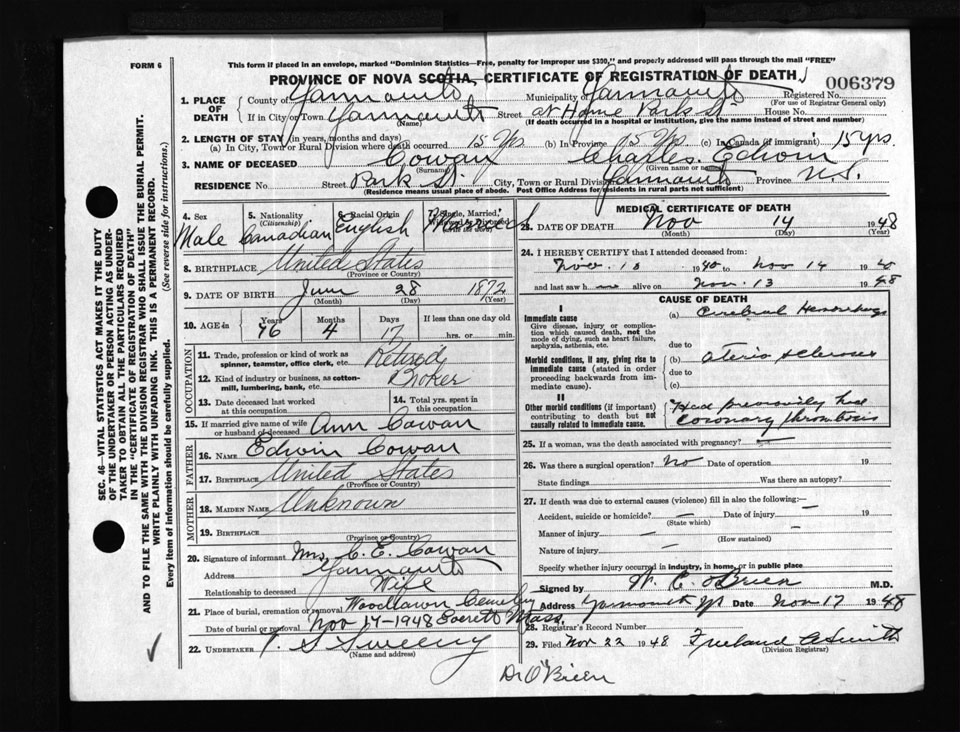 FORM 6
This form if placed in an envelope, marked "Dominion Statistics—Free, penalty for improper use $300," and properly addressed will pass through the mail "FREE"
PROVINCE OF NOVA SCOTIA, CERTIFICATE OF REGISTRATION OF DEATH
006379
1. PLACE OF DEATH
County of Yarmouth Municipality of Yarmouth Registered No.
(For use of Registrar General only)
If in City or Town Yarmouth Street at Home Park St House No.
(Name) (If death occurred in a hospital or institution, give the name instead of street and number)
2. LENGTH OF STAY (in years, months and days)
(a) In City, Town or Rural Division where death occurred 15 Yrs (b) In Province 15 Yrs. (c) In Canada (if immigrant) 15 yrs.
3. NAME OF DECEASED Cowan Charles Edwin
(Surname) (Given name or names)
RESIDENCE No. Street Park St. City, Town or Rural Division Yarmouth Province N.S.
(Residence means usual place of abode. Post Office Address for residents in rural parts not sufficient)
4. Sex Male
5. Nationality (Citizenship) Canadian
Racial Origin English
7. Single, Married, Widowed or Divorced Married
8. BIRTHPLACE United States
(Province or Country)
9. DATE OF BIRTH June 28 1872
(Month) (Day) (Year)
10. AGE in Years 76 Months 4 Days 17 If less than one day old
hrs. or min.
OCCUPATION
11. Trade, profession or kind of work as spinner, teamster, office clerk, etc. Retired
12. Kind of industry or business, as cotton-mill, lumbering, bank, etc. Broker
13. Date deceased last worked at this occupation
14. Total yrs. spent in this occupation
15. If married give name of wife or husband of deceased Ann Cowan
FATHER
16. NAME Edwin Cowan
17. BIRTHPLACE United States
(Province or Country)
MOTHER
18. MAIDEN NAME Unknown
19. BIRTHPLACE
(Province or Country)
20. Signature of informant Mrs C. E. Cowan
Address Yarmouth
Relationship to deceased Wife
21. Place of burial, cremation or removal Woodlawn Cemetery
Date of burial or removal Nov 17-1948 Everett Mass.
22. UNDERTAKER V. S Sweeny
(Name and address)
MEDICAL CERTIFICATE OF DEATH
23. DATE OF DEATH Nov 14 1948
(Month) (Day) (Year)
24. I HEREBY CERTIFY that I attended deceased from:
Nov. 10 1940 to Nov 14 19
and last saw h m alive on Nov. 13 1948
CAUSE OF DEATH
I
Immediate cause
Give disease, injury or complication which caused death, not the mode of dying, such as heart failure, asphyxia, asthenia, etc.
(a) Cerebral Hemorrhage
due to
Morbid conditions, if any, giving rise to immediate cause (stated in order proceeding backwards from immediate cause).
(b) aterio sclerosis
due to
(c)
II
Other morbid conditions (if important) contributing to death but not causally related to immediate cause.
Had previously had
coronary thrombosis
25. If a woman, was the death associated with pregnancy? —
26. Was there a surgical operation? no Date of operation 19
State findings Was there an autopsy?
27. If death was due to external causes (violence) fill in also the following:—
Accident, suicide or homicide? — Date of injury — 19
(State which)
Manner of injury — —
(How sustained)
Nature of injury —
Specify whether injury occurred in industry, in home, or in public place
Signed by W. C. O'Brien M.D.
Address Yarmouth NS Date Nov 17 1948
28. Registrar's Record Number
29. Filed Nov 22 1948 Freeland A Smith
(Division Registrar)
Dr O'Brien
SEC. 46—VITAL STATISTICS ACT MAKES IT THE DUTY
OF THE UNDERTAKER OR PERSON ACTING AS UNDER-
TAKER TO OBTAIN ALL THE PARTICULARS REQUIRED
IN THE "CERTIFICATE OF REGISTRATION OF DEATH"
AND TO FILE THE SAME WITH THE DIVISION REGISTRAR WHO SHALL ISSUE THE BURIAL PERMIT.
WRITE PLAINLY WITH UNFADING INK. THIS IS A PERMANENT RECORD.
Every item of information should be carefully supplied. (See reverse side for instructions.)